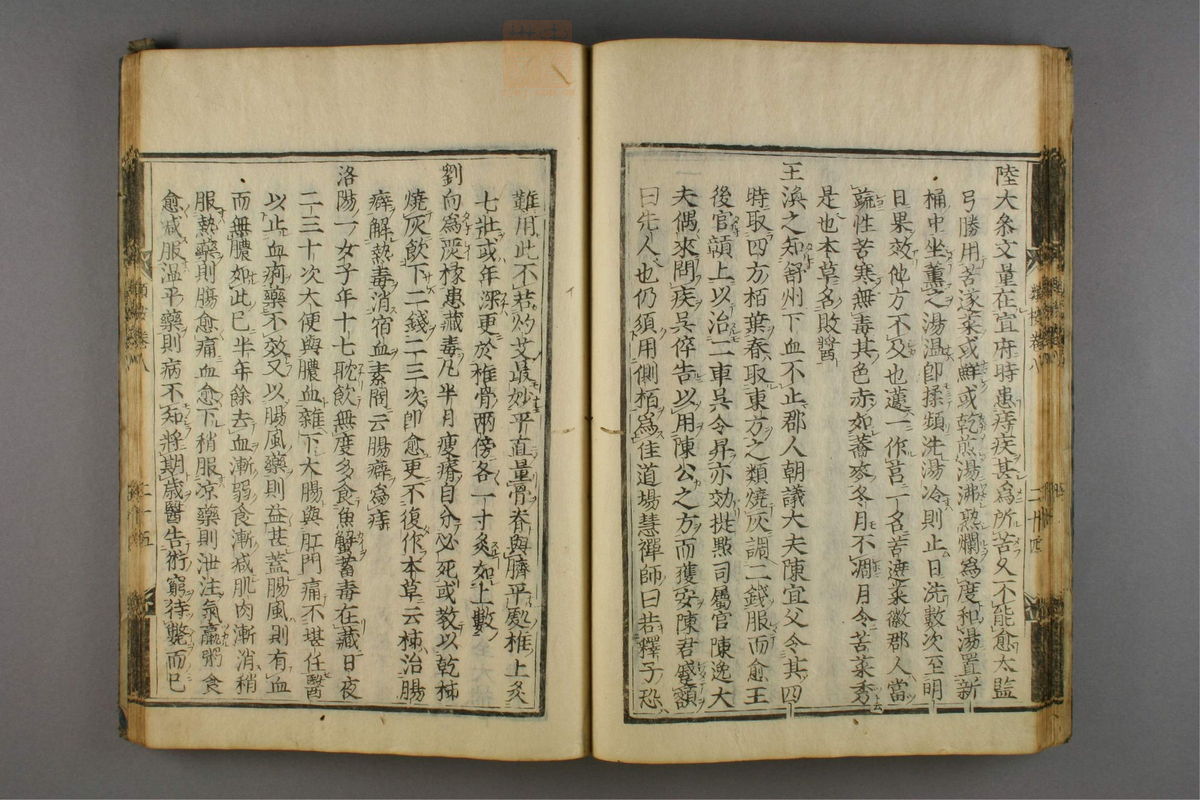 陸大參文量在宜府時患痔疾甚爲所苦久不能愈太監
弓勝用苦蘧菜或鮮或乾煎湯沸熟爛爲度和湯置新
桶中坐薰之湯温卽揉頻洗湯冷則止日洗數次至明
日果效他方不及也蘧一作苣一名苦蕒菜徽郡人當
蔬性苦寒無毒其色赤如蕎麥冬月不凋月令苦菜秀
是也本草名敗醬
王渙之知舒州下血不止郡人朝議大夫陳宜父令其四
時取四方栢葉春取東方之類燒灰調二錢服而愈王
後官潁上以治二車吳令昇亦効提點司屬官陳逸大
夫偶來問疾吳倅告以用陳公之方而獲安陳君蹙額
曰先人也仍須用側栢爲佳道場慧禪師曰若釋子恐
難用此不若灼艾最妙平直量骨脊與臍平處椎上灸
七壯或年深更於椎骨兩傍各一寸灸如上數
劉向爲嚴椽患藏毒凡半月瘦瘠自分必死或教以乾柿
燒灰飮下二錢二三次卽愈更不復作本草云柿治腸
癖解熱毒消宿血素問云腸癖爲痔
洛陽一女子年十七耽飮無度多食魚蟹蓄毒在藏日夜
二三十次大便與膿血雜下大腸與肛門痛不堪任醫
以止血痢藥不效又以腸風藥則益甚蓋腸風則有血
而無膿如此已半年餘去血漸弱食漸减肌肉漸消稍
服熱藥則腸愈痛血愈下稍服凉藥則泄注氣羸粥食
愈减服温平藥則病不知將期歳醫告術窮待斃而已
類按卷八
二十四
二十五